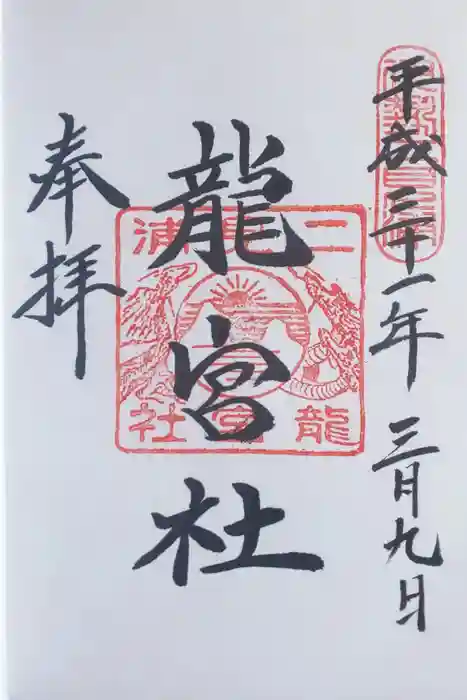 平成三十一年 三月九日
龍宮社
二見浦
龍宮社
奉拝